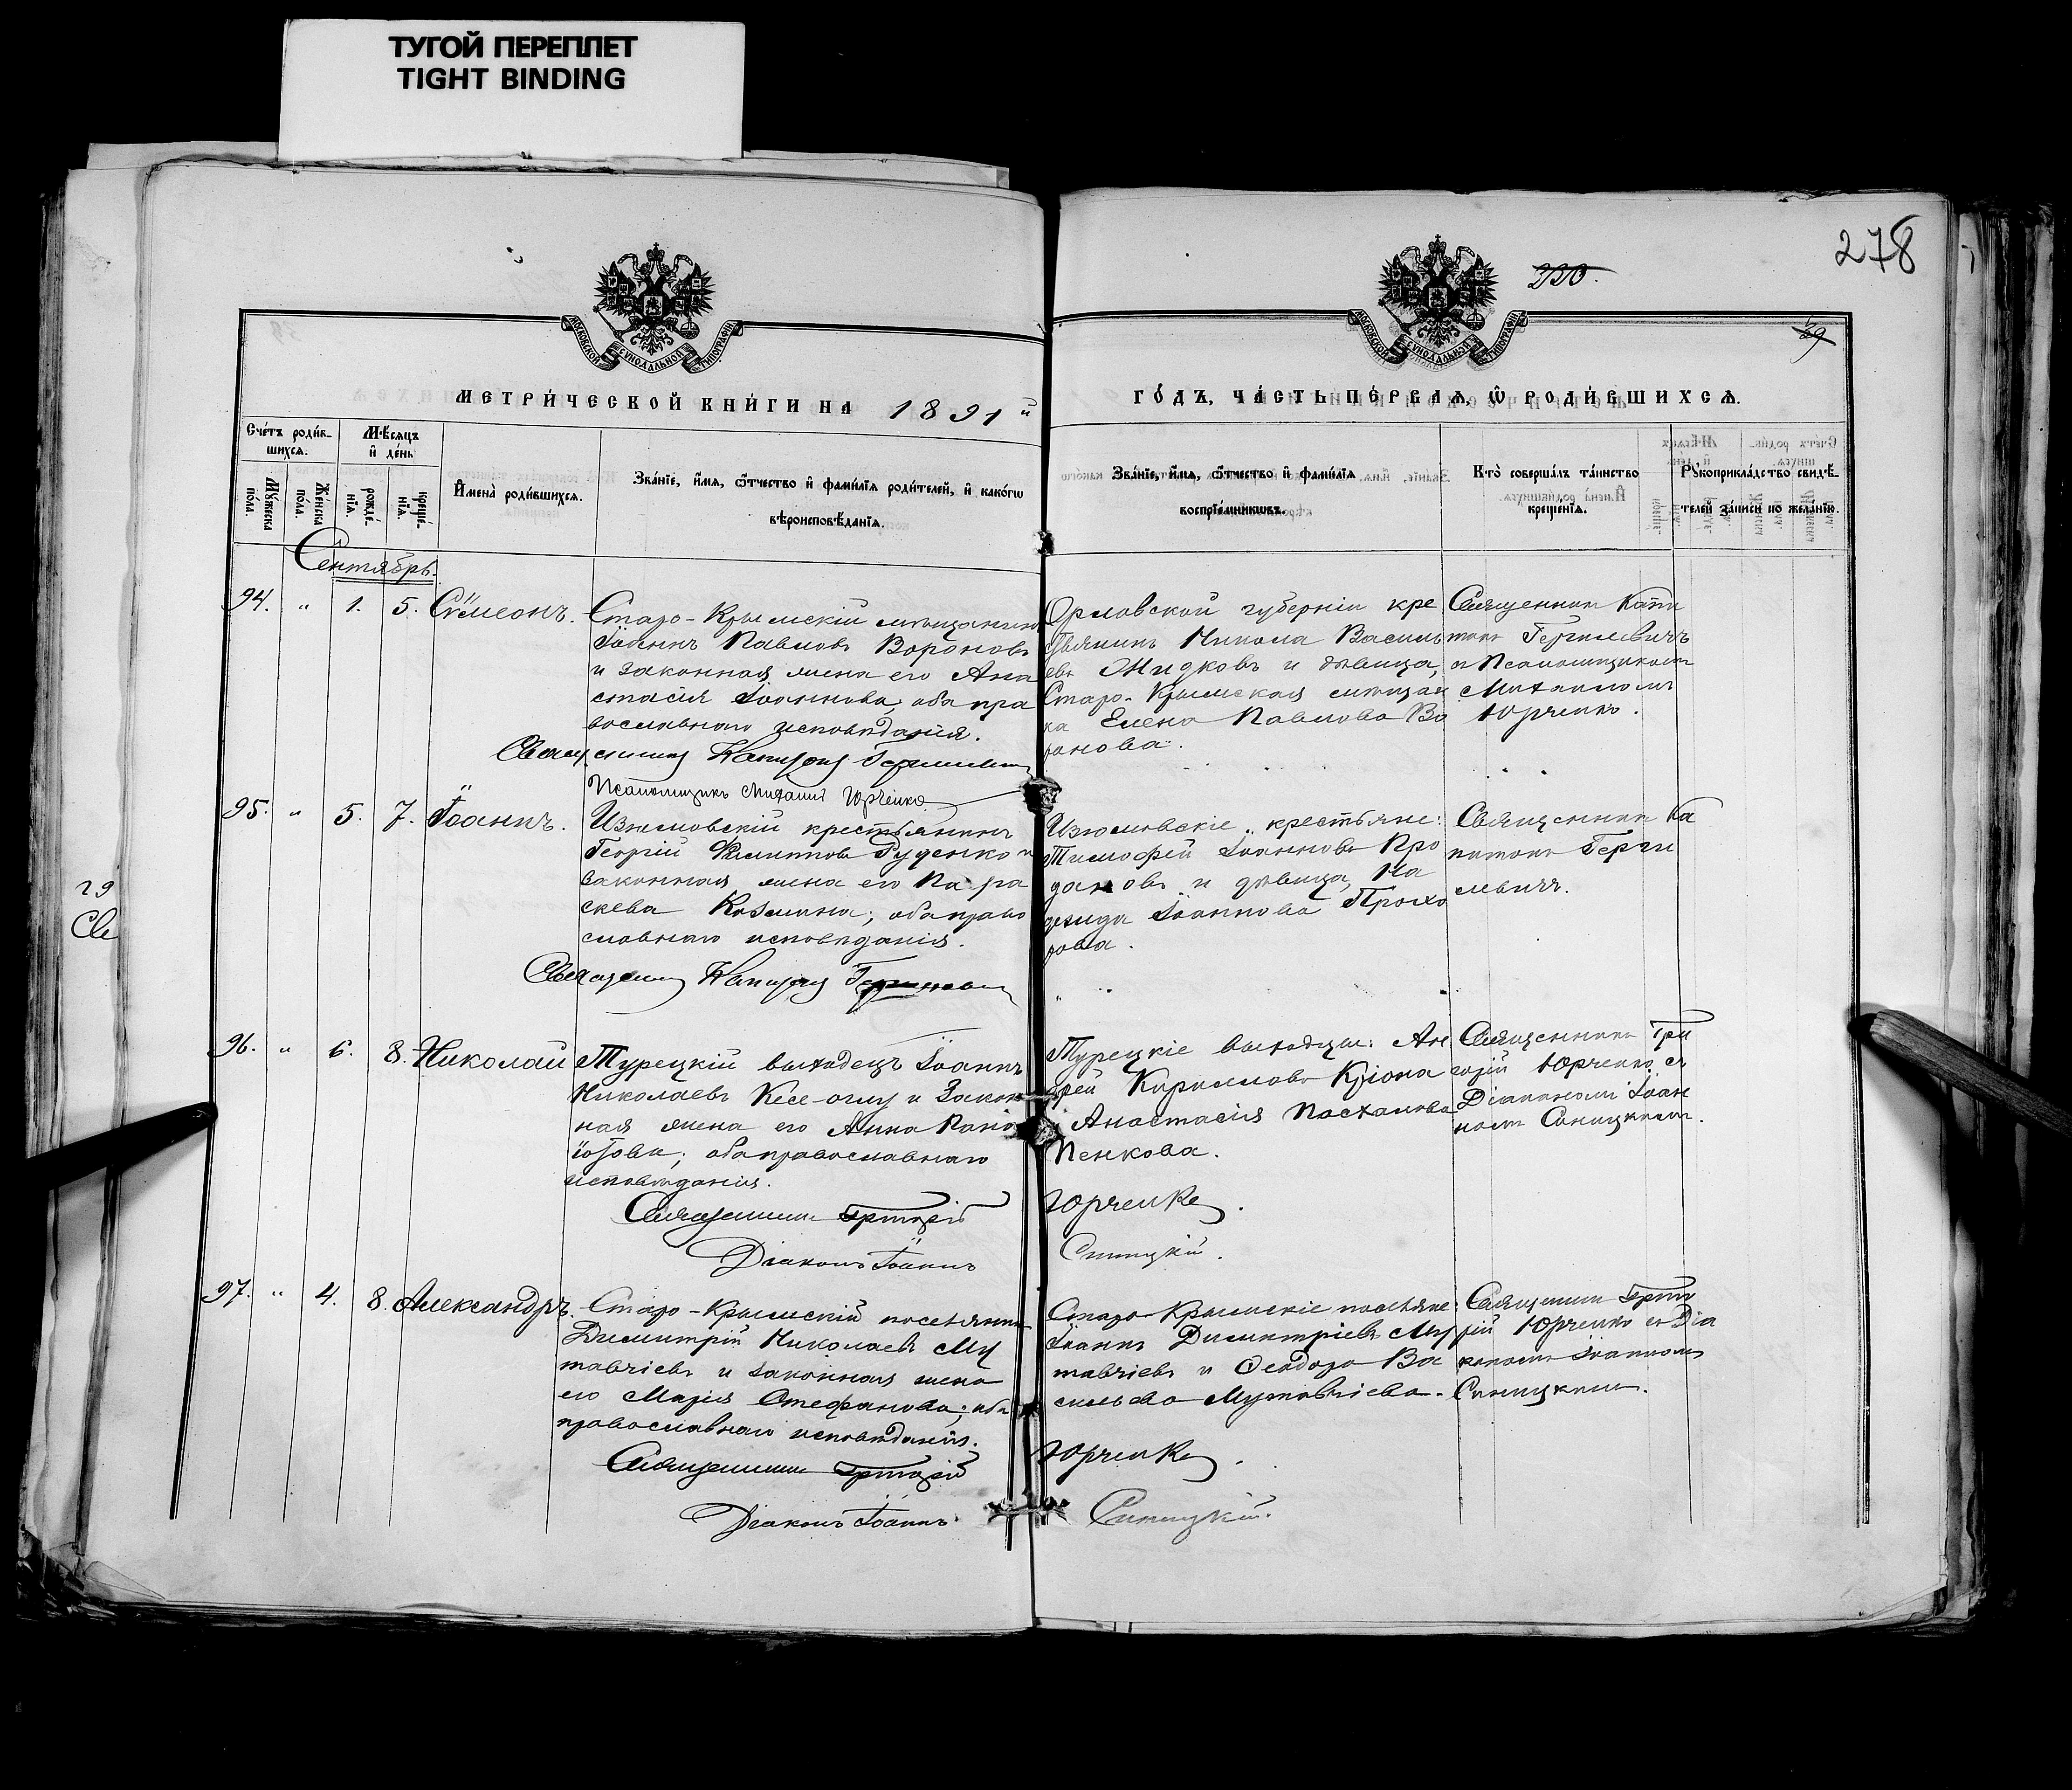 ТУГОЙ ПЕРЕПЛЕТ
TIGHT BINDING
278
29
МОСКОВСКОЙ СѴНОДАЛЬНОЙ ТИПОГРАФІИ
МОСКОВСКОЙ СѴНОДАЛЬНОЙ ТИПОГРАФІИ
МЕТРИ́ЧЕСКОЙ КНИ́ГИ НА 1891й
ГО́ДЪ, ЧА́СТЬ ПЕ́РВАѦ, Ѡ҆ РОДИ́ВШИХСѦ.
Сче́тъ роди́в-
шихсѧ.
Мꙋ́жеска по́ла.
Же́нска по́ла.
Мѣ́сѧцъ
и҆ де́нь
рожде́-
нїѧ.
креще́-
нїѧ.
И҆мена̀ роди́вшихсѧ.
Зва́нїе, и҆́мѧ, ѻ҆́тчество и҆ фами́лїѧ роди́телей, и҆ како́гѡ
вѣроисповѣ́данїѧ.
Зва́нїе, и҆́мѧ, ѻ҆́тчество и҆ фами́лїѧ
воспрїе́мникѡвъ.
Кто̀ соверша́лъ та́инство
креще́нїѧ.
Рꙋкоприкла́дство свидѣ́-
телей за́писи по жела́нїю.
Сентябрь.
94. " 1. 5. Сѵмеонъ.
Старо-Крымскій мѣщанинъ
Іоаннъ Павловъ Вороновъ
и законная жена его Ана
стасія Іоаннова, оба пра
вославнаго исповѣданія.
Священникъ Капитонъ Гергилевичъ
Псаломщикъ Михаилъ Юрченко
Орловской губерніи кре
стьянинъ Никола Василь
евъ Жидковъ и дѣвица,
Старо-Крымская мѣщан
ка Елена Павлова Во
ронова.
Священникъ Капи
тонъ Гергилевичъ
и Псаломщикомъ
Михаиломъ
Юрченко.
95. " 5. 7. Іоаннъ.
Изюмовскій крестьянинъ
Георгій Филиповъ Руденко и
законная жена его Пара
скева Козмина; оба право
славнаго исповѣданія.
Священникъ Капитонъ Гергилевичъ
Изюмовскіе крестьяне:
Тимофей Іоанновъ Про
дановъ и дѣвица, На
дежда Іоаннова Прохо
рова.
Священникъ Ка
питонъ Герги
левичъ.
96. " 6. 8. Николай
Турецкій выходецъ Іоаннъ
Николаевъ Кесе-оглу и Закон
ная жена его Анна Пано
іотова; оба православнаго
исповѣданія.
Священникъ Григорій Юрченко.
Діаконъ Іоаннъ Синицкій.
Турецкіе выходцы: Ан
дрей Кирилловъ Кріона
и Анастасія Пасхалова
Пенкова.
Священникъ Гри
горій Юрченко съ
Діакономъ Іоан
номъ Синицкимъ.
97. " 4. 8. Александръ.
Старо-Крымскій поселянинъ
Димитрій Николаевъ Му
тавчіевъ и законная жена
его Марія Стефанова; оба
православнаго исповѣданія.
Священникъ Григорій Юрченко.
Діаконъ Іоаннъ Синицкій.
Старо-Крымскіе поселяне:
Іоаннъ Димитріевъ Му
тавчіевъ и Феодора Ва
сильева Мутавчіева.
Священникъ Григо
рій Юрченко съ Діа
кономъ Іоанномъ
Синицкимъ.